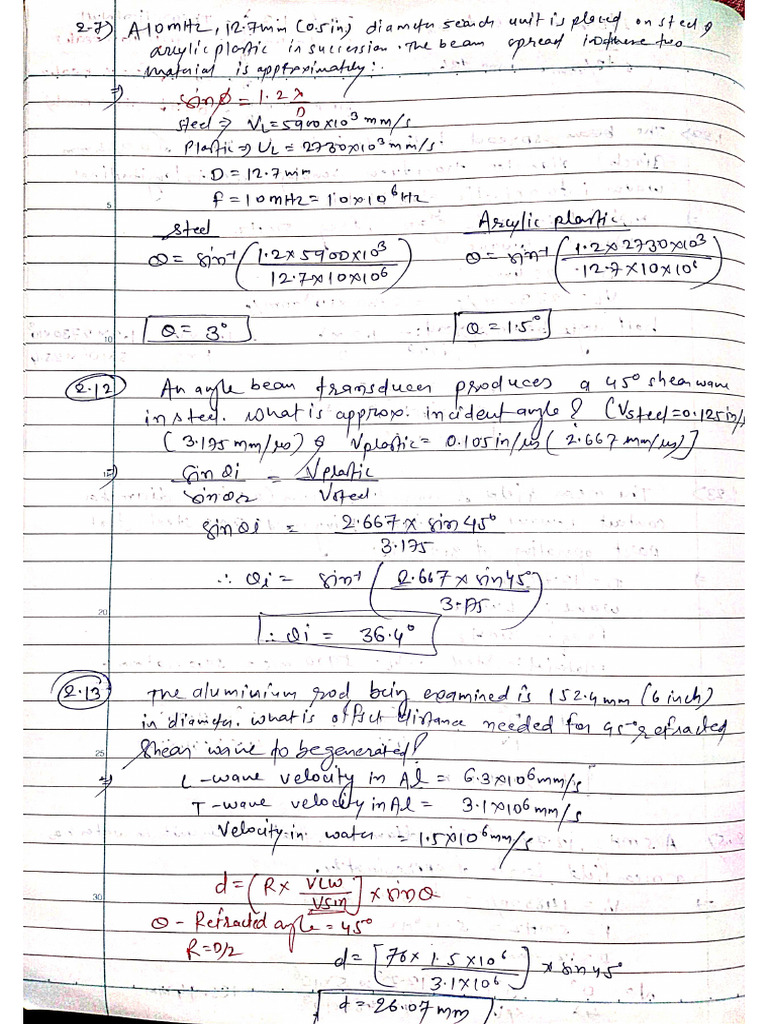 2.7) A 10mHz, 12.7mm (0.5in) diameter search unit is placed on steel &
acrylic plastic in succession. The beam spread in these two
material is approximately:.
⇒ sinø = 1.2 λ/D
steel ⇒ VL = 5900x10³ mm/s
Plastic ⇒ VL = 2730x10³ mm/s.
D = 12.7mm
f = 10mHz = 10x10⁶Hz
steel
θ = sin⁻¹ (1.2 x 5900x10³ / 12.7x10x10⁶)
θ = 3°
Acrylic plastic
θ = sin⁻¹ (1.2 x 2730x10³ / 12.7x10x10⁶)
θ = 1.5°
2.12 An angle beam transducer produces a 45° shear wave
in steel. what is approx. incident angle? (Vsteel = 0.125in/
(3.175mm/μs) & Vplastic = 0.105in/μs (2.667 mm/μs)]
⇒ sin θi / sin θr = Vplastic / Vsteel.
sin θi = 2.667 x sin45° / 3.175
∴ θi = sin⁻¹ (2.667 x sin45° / 3.175)
∴ θi = 36.4°
2.13 The aluminium rod being examined is 152.4mm (6 inch)
in diameter. what is offset distance needed for 45° refracted
shear wave to be generated?
⇒ L-wave velocity in Al = 6.3x10⁶mm/s
T-wave velocity in Al = 3.1x10⁶mm/s
Velocity in water = 1.5x10⁶mm/s
d = (R x VLW / VSM] x sinθ
θ - Refracted angle = 45°
R = D/2
d = [76 x 1.5x10⁶ / 3.1x10⁶] x sin45°
d = 26.07 mm
5
10
15
20
25
30